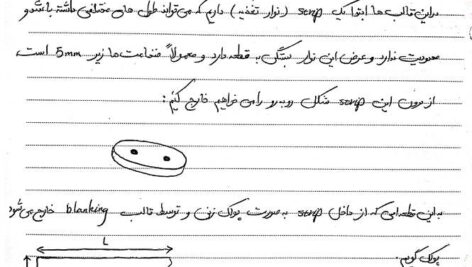 در این قالب ها ابتدا یک scrap (نوار تغذیه) داریم که می تواند طول های مختلفی داشته باشد و
محدودیت ندارد و عرض این نوار بستگی به قطعه دارد و معمولاً ضخامت ها زیر 5mm است.
از درون این scrap شکل رو به رو را می خواهیم خارج کنیم:
به این قطعه ای که از داخل scrap به صورت پولک زنی و توسط قالب blanking خارج می شود
پولک گویم.
L